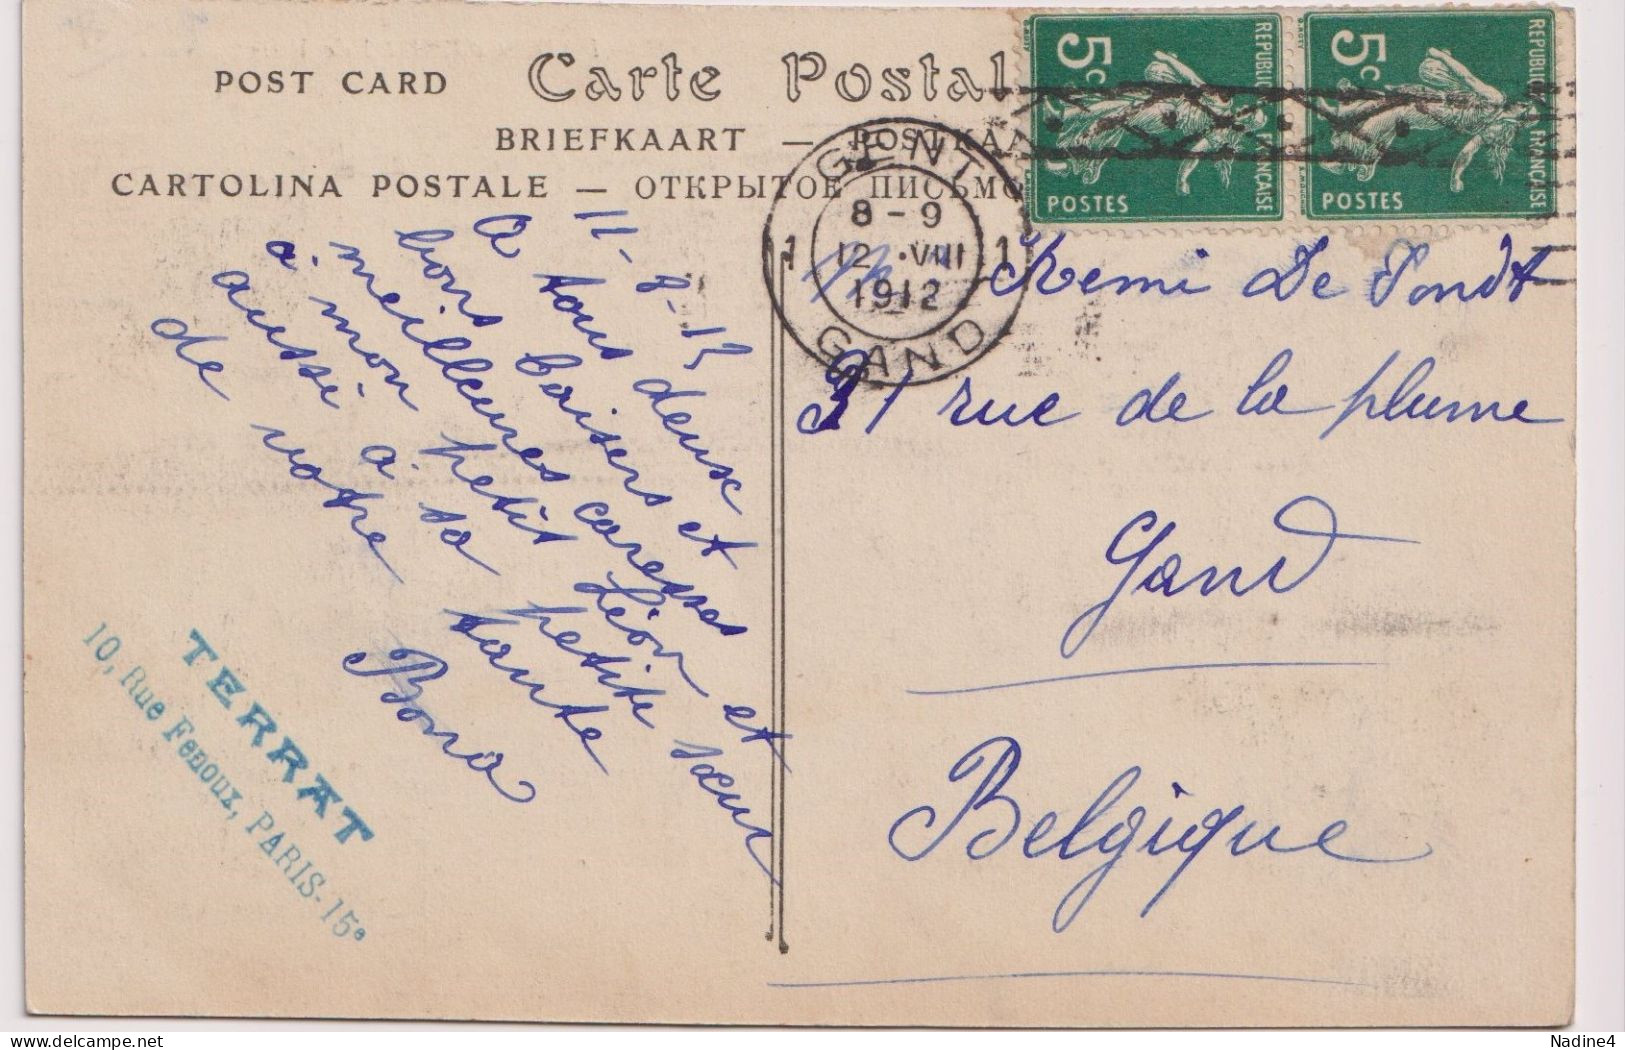 POST CARD Carte Postal
BRIEFKAART — POSTKAA
CARTOLINA POSTALE — ОТКРЫТОЕ ПИСЬМО
5c
REPUBLIQUE FRANCAISE
POSTES
5c
REPUBLIQUE FRANÇAISE
POSTES
GENT
8-9
1 12 · VIII 1
1912
GAND
11-8-12
A tous deux
bons baisers et
meilleures caresses
à mon petit Léon et
aussi à sa petite sœur
de votre tante
Bona
Remi De Pondt
31 rue de la plume
Gand
Belgique
TERRAT
10, Rue Fenoux, PARIS-15e
delcampe.net
Nadine4